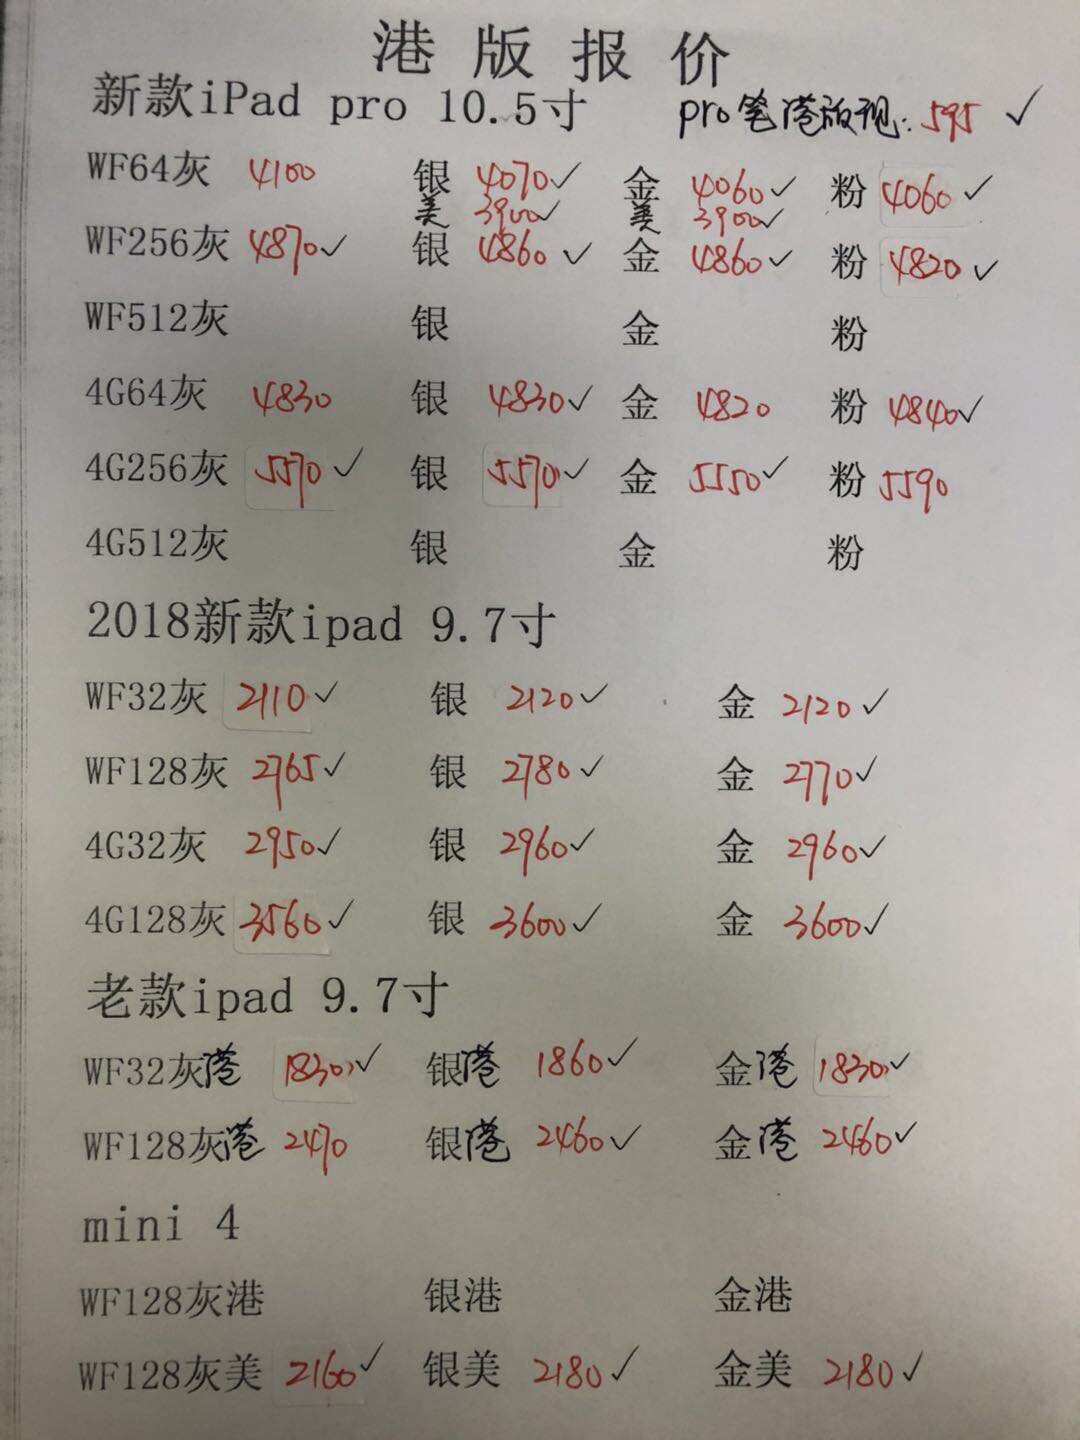 港版报价
新款iPad pro 10.5寸 pro笔港版现:595 ✓
WF64灰 4100 银 4070✓ 金 4060✓ 粉 4060✓
美 3900✓ 美 3900✓
WF256灰 4870✓ 银 4860✓ 金 4860✓ 粉 4820✓
WF512灰 银 金 粉
4G64灰 4830 银 4830✓ 金 4820 粉 4840✓
4G256灰 5570✓ 银 5570✓ 金 5550✓ 粉 5590
4G512灰 银 金 粉
2018新款ipad 9.7寸
WF32灰 2110✓ 银 2120✓ 金 2120✓
WF128灰 2765✓ 银 2780✓ 金 2770✓
4G32灰 2950✓ 银 2960✓ 金 2960✓
4G128灰 3560✓ 银 3600✓ 金 3600✓
老款ipad 9.7寸
WF32灰港 1830✓ 银港 1860✓ 金港 1830✓
WF128灰港 2470 银港 2460✓ 金港 2460✓
mini 4
WF128灰港 银港 金港
WF128灰美 2160✓ 银美 2180✓ 金美 2180✓